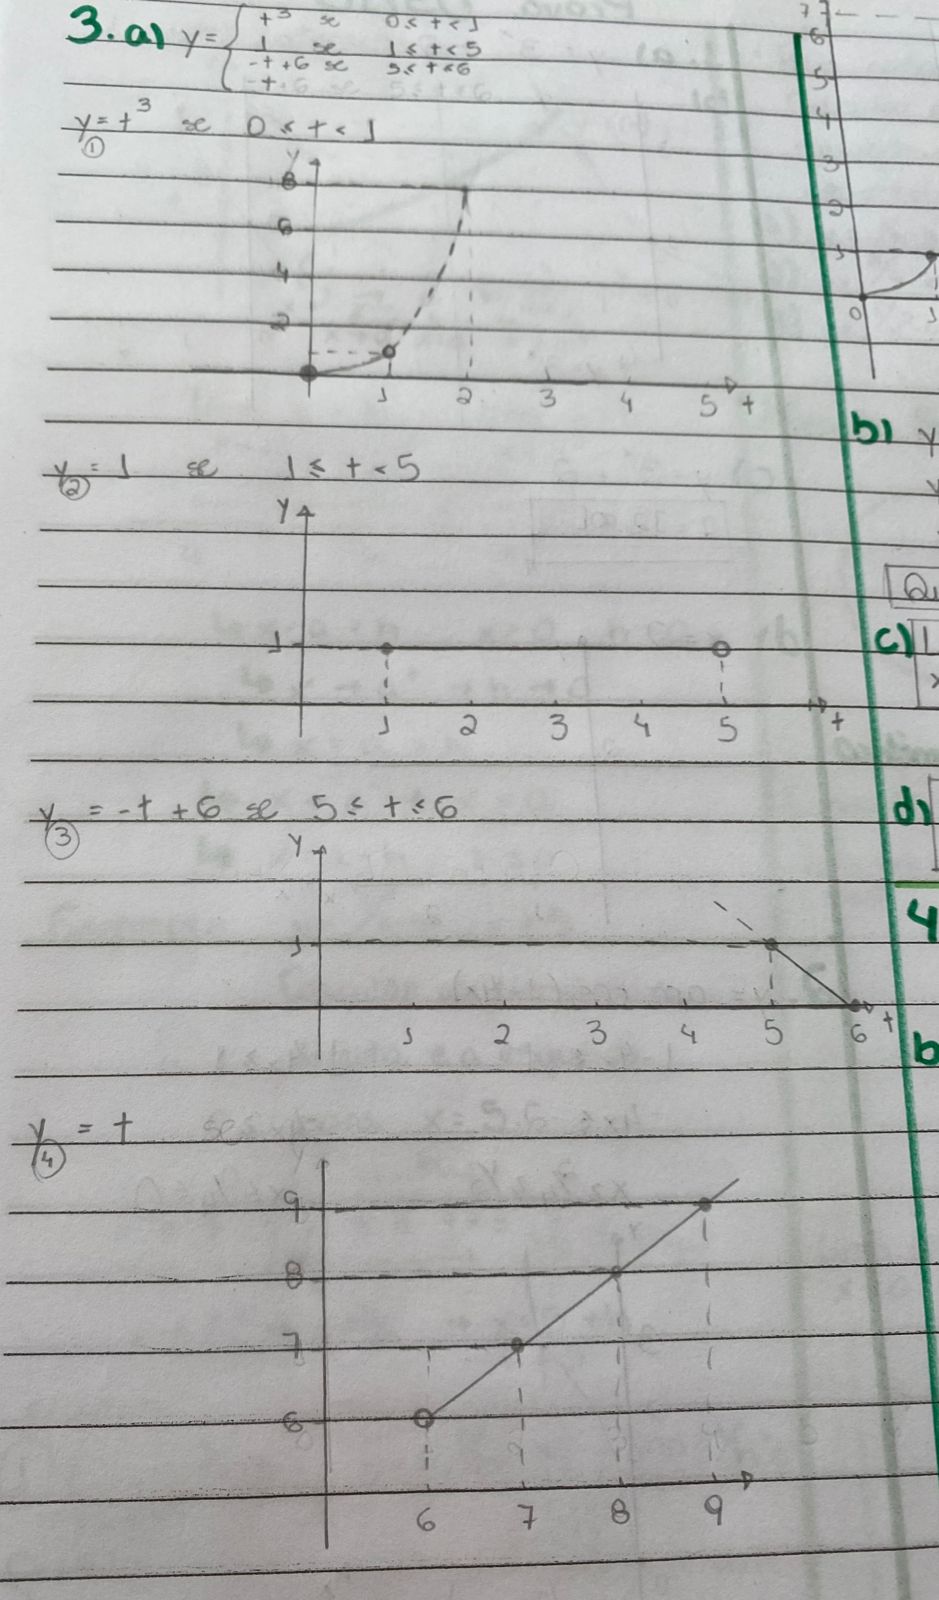 3. a) y = { t³ se 0 ≤ t < 1
1 se 1 ≤ t < 5
-t + 6 se 5 ≤ t ≤ 6
-t + 6 se 5 ≤ t ≤ 6
y① = t³ se 0 ≤ t < 1
y
8
6
4
2
1 2 3 4 5 t
y② = 1 se 1 ≤ t < 5
y
1
1 2 3 4 5 t
y③ = -t + 6 se 5 ≤ t ≤ 6
y
1
1 2 3 4 5 6 t
y④ = t
9
8
7
6
6 7 8 9
7
6
5
4
3
2
1
0 1
b) y
y
Q
c) 1
x
d)
4
b